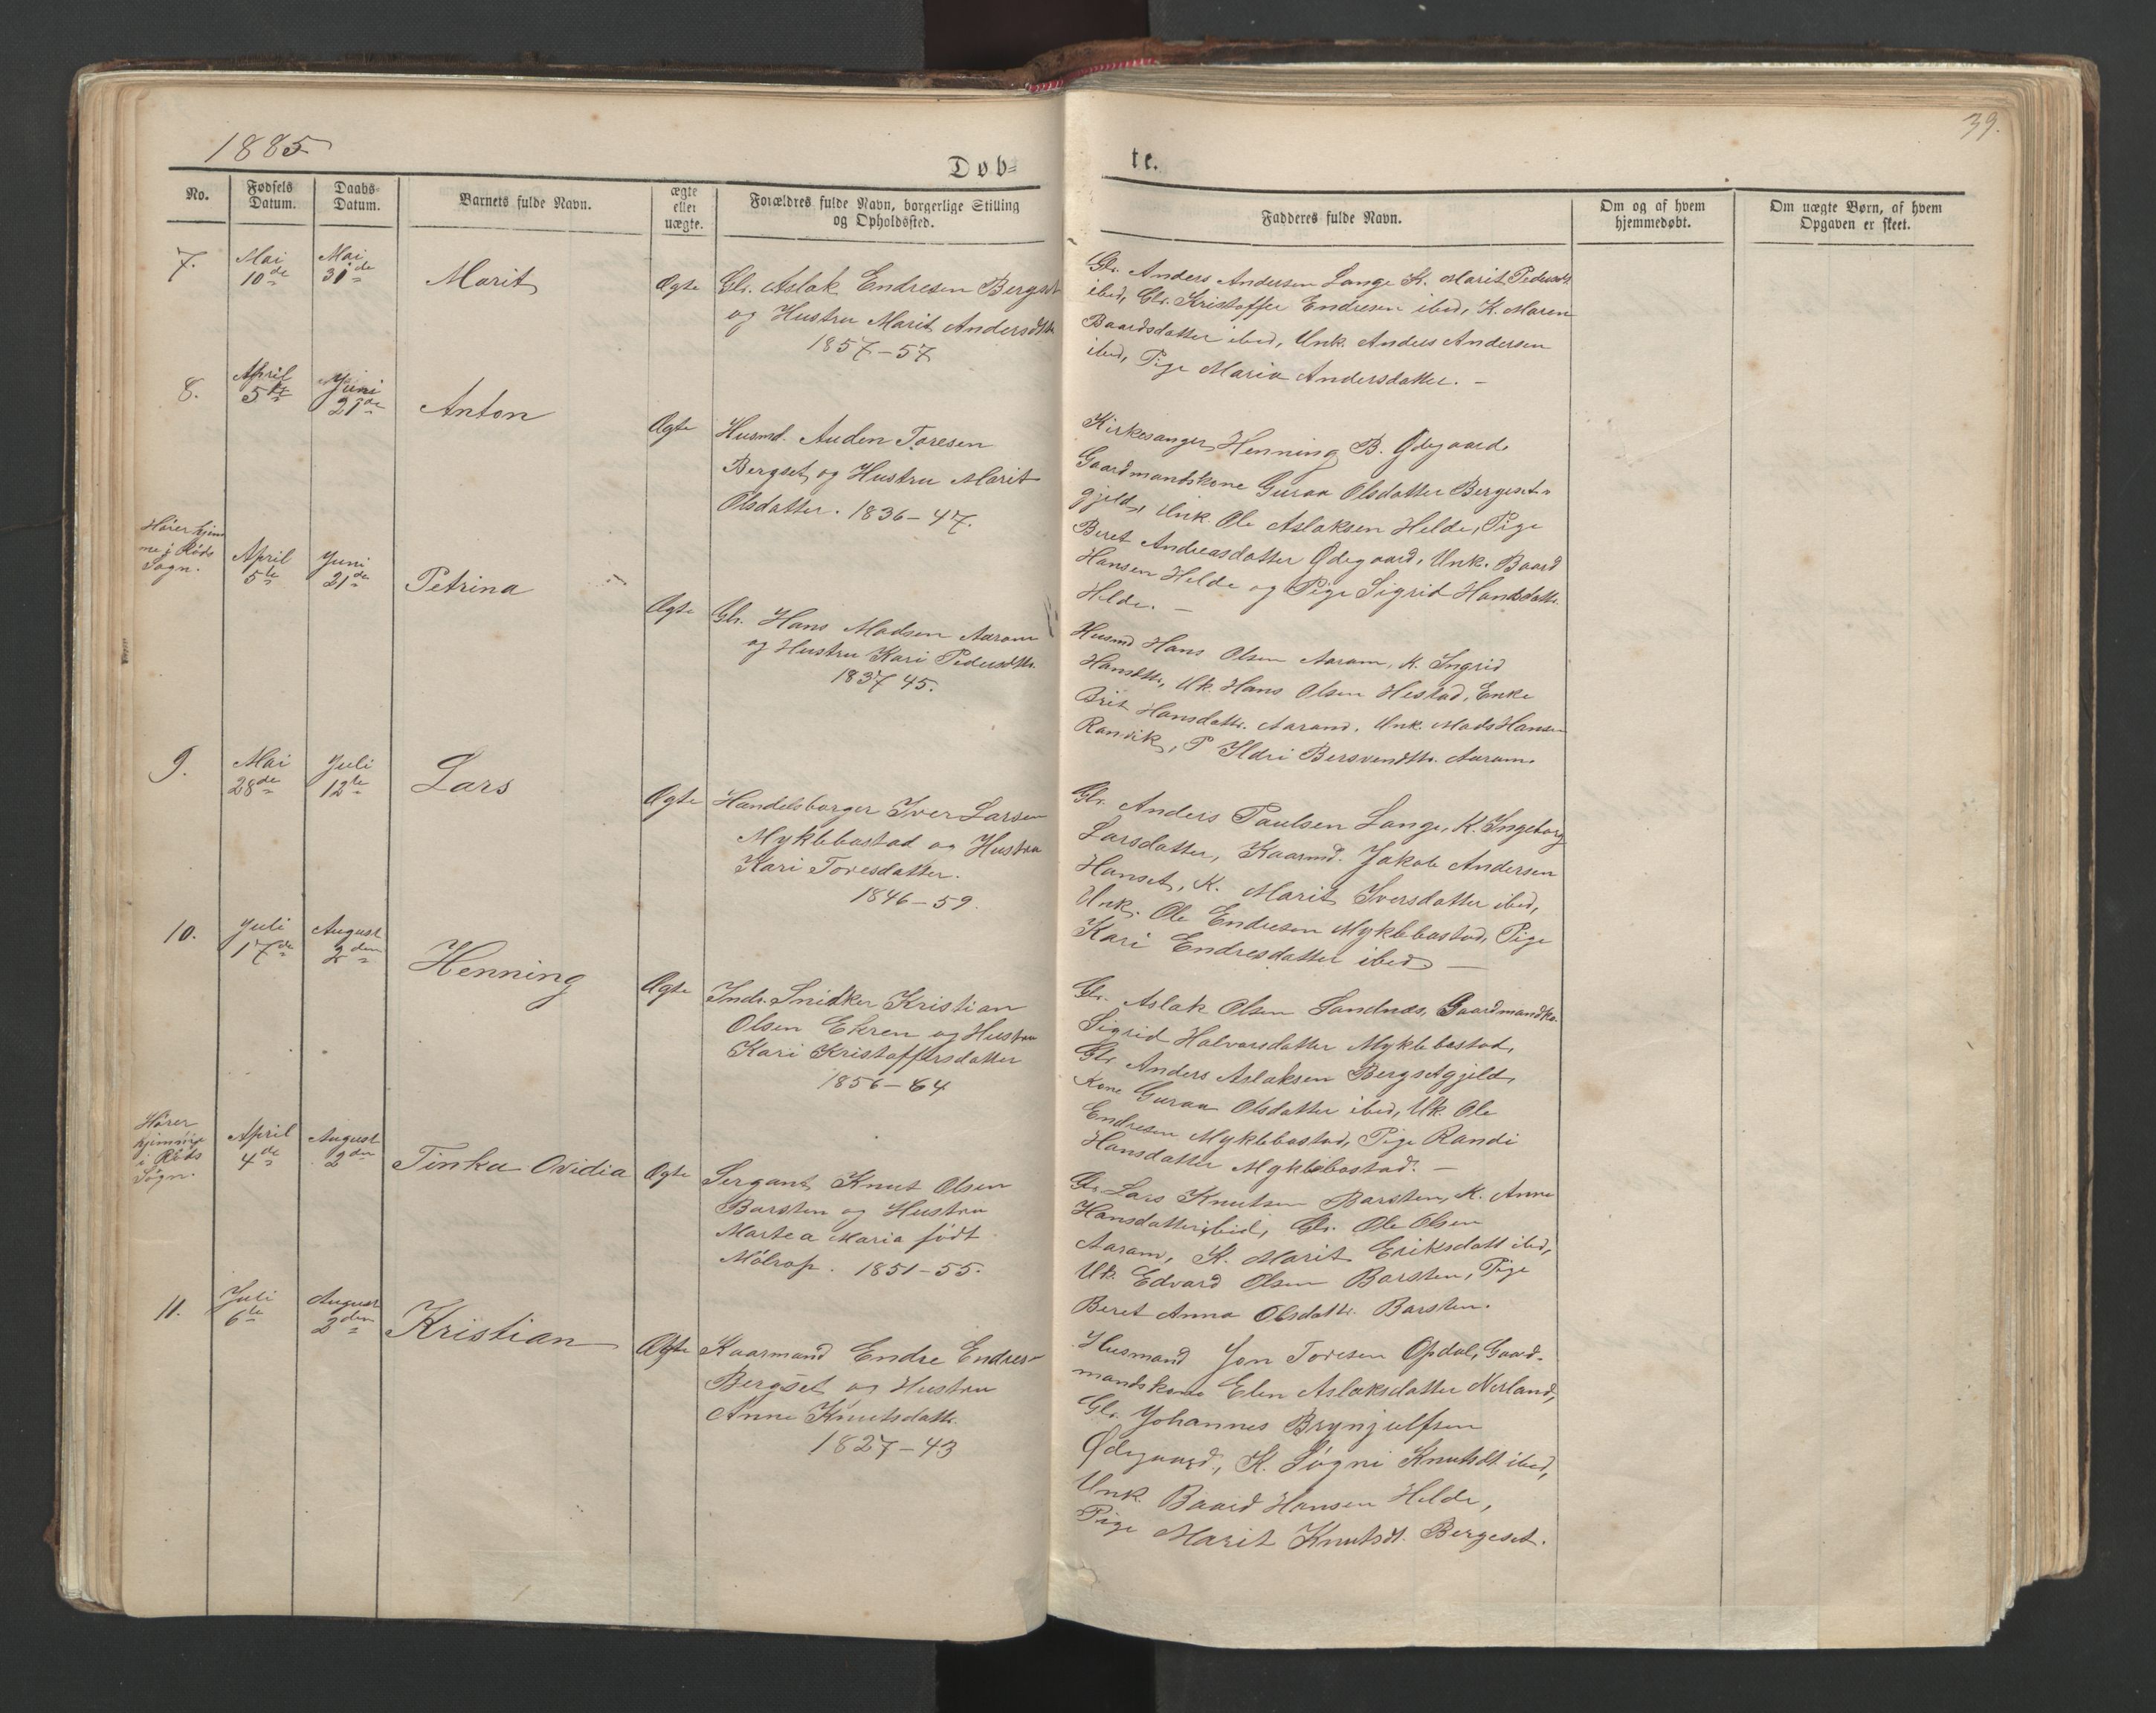 1885
39.
Døb-
te.
No.
Fødsels Datum.
Daabs-Datum.
Barnets fulde Navn.
ægte eller uægte.
Forældres fulde Navn, borgerlige Stilling og Opholdssted.
Fadderes fulde Navn.
Om og af hvem hjemmedøbt.
Om uægte Børn, af hvem Opgaven er skeet.
7.
Mai
10de
Mai
31de
Marit
Ægte
Gbr. Aslak Endresen Bergset
og Hustru Marit Andersdtr
1857-57
Gbr. Anders Andersen Lange K. Marit Pedersdt
ibid, Gbr. Kristoffer Endresen ibid, K. Maren
Baardsdatter ibid, Unk. Anders Andersen
ibid, Pige Maria Andersdatter. -
8.
April
5te
Juni
21de
Anton
Ægte
Husmd. Auden Toresen
Bergset og Hustru Marit
Olsdatter. 1836-47.
Kirkesanger Henning B. Ødegaard
Gaardmandskone Guraa Olsdatter Bergset-
gjeld, Unk. Ole Aslaksen Helde, Pige
Beret Andreasdatter Ødegaard, Unk. Baard
Hansen Helde og Pige Sigrid Hansdattr
Helde. -
Hører hjem
me i Røds
Sogn.
April
5te
Juni
21de
Petrina
Ægte
Gbr. Hans Madsen Aaram
og Hustru Kari Pedersdtr.
1837 45.
Husmd Hans Olsen Aaram, K. Ingrid
Hansdtr, Uk. Hans Olsen Hestad, Enke
Brit Hansdattr. Aaram, Unk. Mads Hansen
Ranvik, P Ildri Bersvendtr. Aaram.
9.
Mai
28de
Juli
12te
Lars
Ægte
Handelsborger Iver Larsen
Myklebostad og Hustru
Kari Toresdatter.
1846-59.
Gbr. Anders Paulsen Lange, K. Ingeborg
Larsdatter, Kaarmd. Jakob Andersen
Hanset, K. Marit Iversdatter ibid,
Unk. Ole Endresen Myklebostad, Pige
Kari Endresdatter ibid -
10.
Juli
17de
August
2den
Henning
Ægte
Indr. Snidker Kristian
Olsen Ekren og Hustru
Kari Kristoffersdatter
1856-64
Gbr. Aslak Olsen Sandnes, Gaardmandko.
Sigrid Halvorsdatter Myklebostad,
Gbr Anders Aslaksen Bergsetgjeld,
Kone Guraa Olsdatter ibid, Uk Ole
Endresen Myklebostad, Pige Randi
Hansdatter Myklebostad. -
Hører
hjemme
i Røds
Sogn.
April
4de
August
2den
Tinka Ovidia
Ægte
Sergant Knut Olsen
Barsten og Hustru
Martea Maria født
Mølrop. 1851-55.
Gbr Lars Knutsen Barsten, K. Anne
Hansdatter ibid, Gbr. Ole Olsen
Aaram, K. Marit Eriksdatt ibid,
Uk. Edvard Olsen Barsten, Pige
Beret Anna Olsdattr. Barsten.
11.
Juli
6te
August
2den
Kristian
Ægte
Kaarmand Endre Endres-
Bergset og Hustru
Anne Knutsdattr.
1827-43
Husmand Jon Toresen Opdal, Gaard-
mandskone Elen Aslaksdatter Nerland,
Gbr. Johannes Brynjulfsen
Ødegaard, K. Søgni Knutsdt ibid,
Unk. Baard Hansen Helde,
Pige Marit Knutsdt. Bergeset.